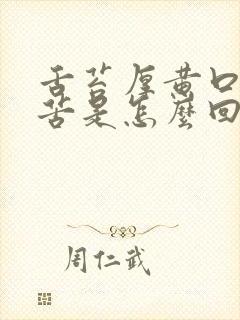 舌苔厚黄口
苦是怎麼回
周仁武